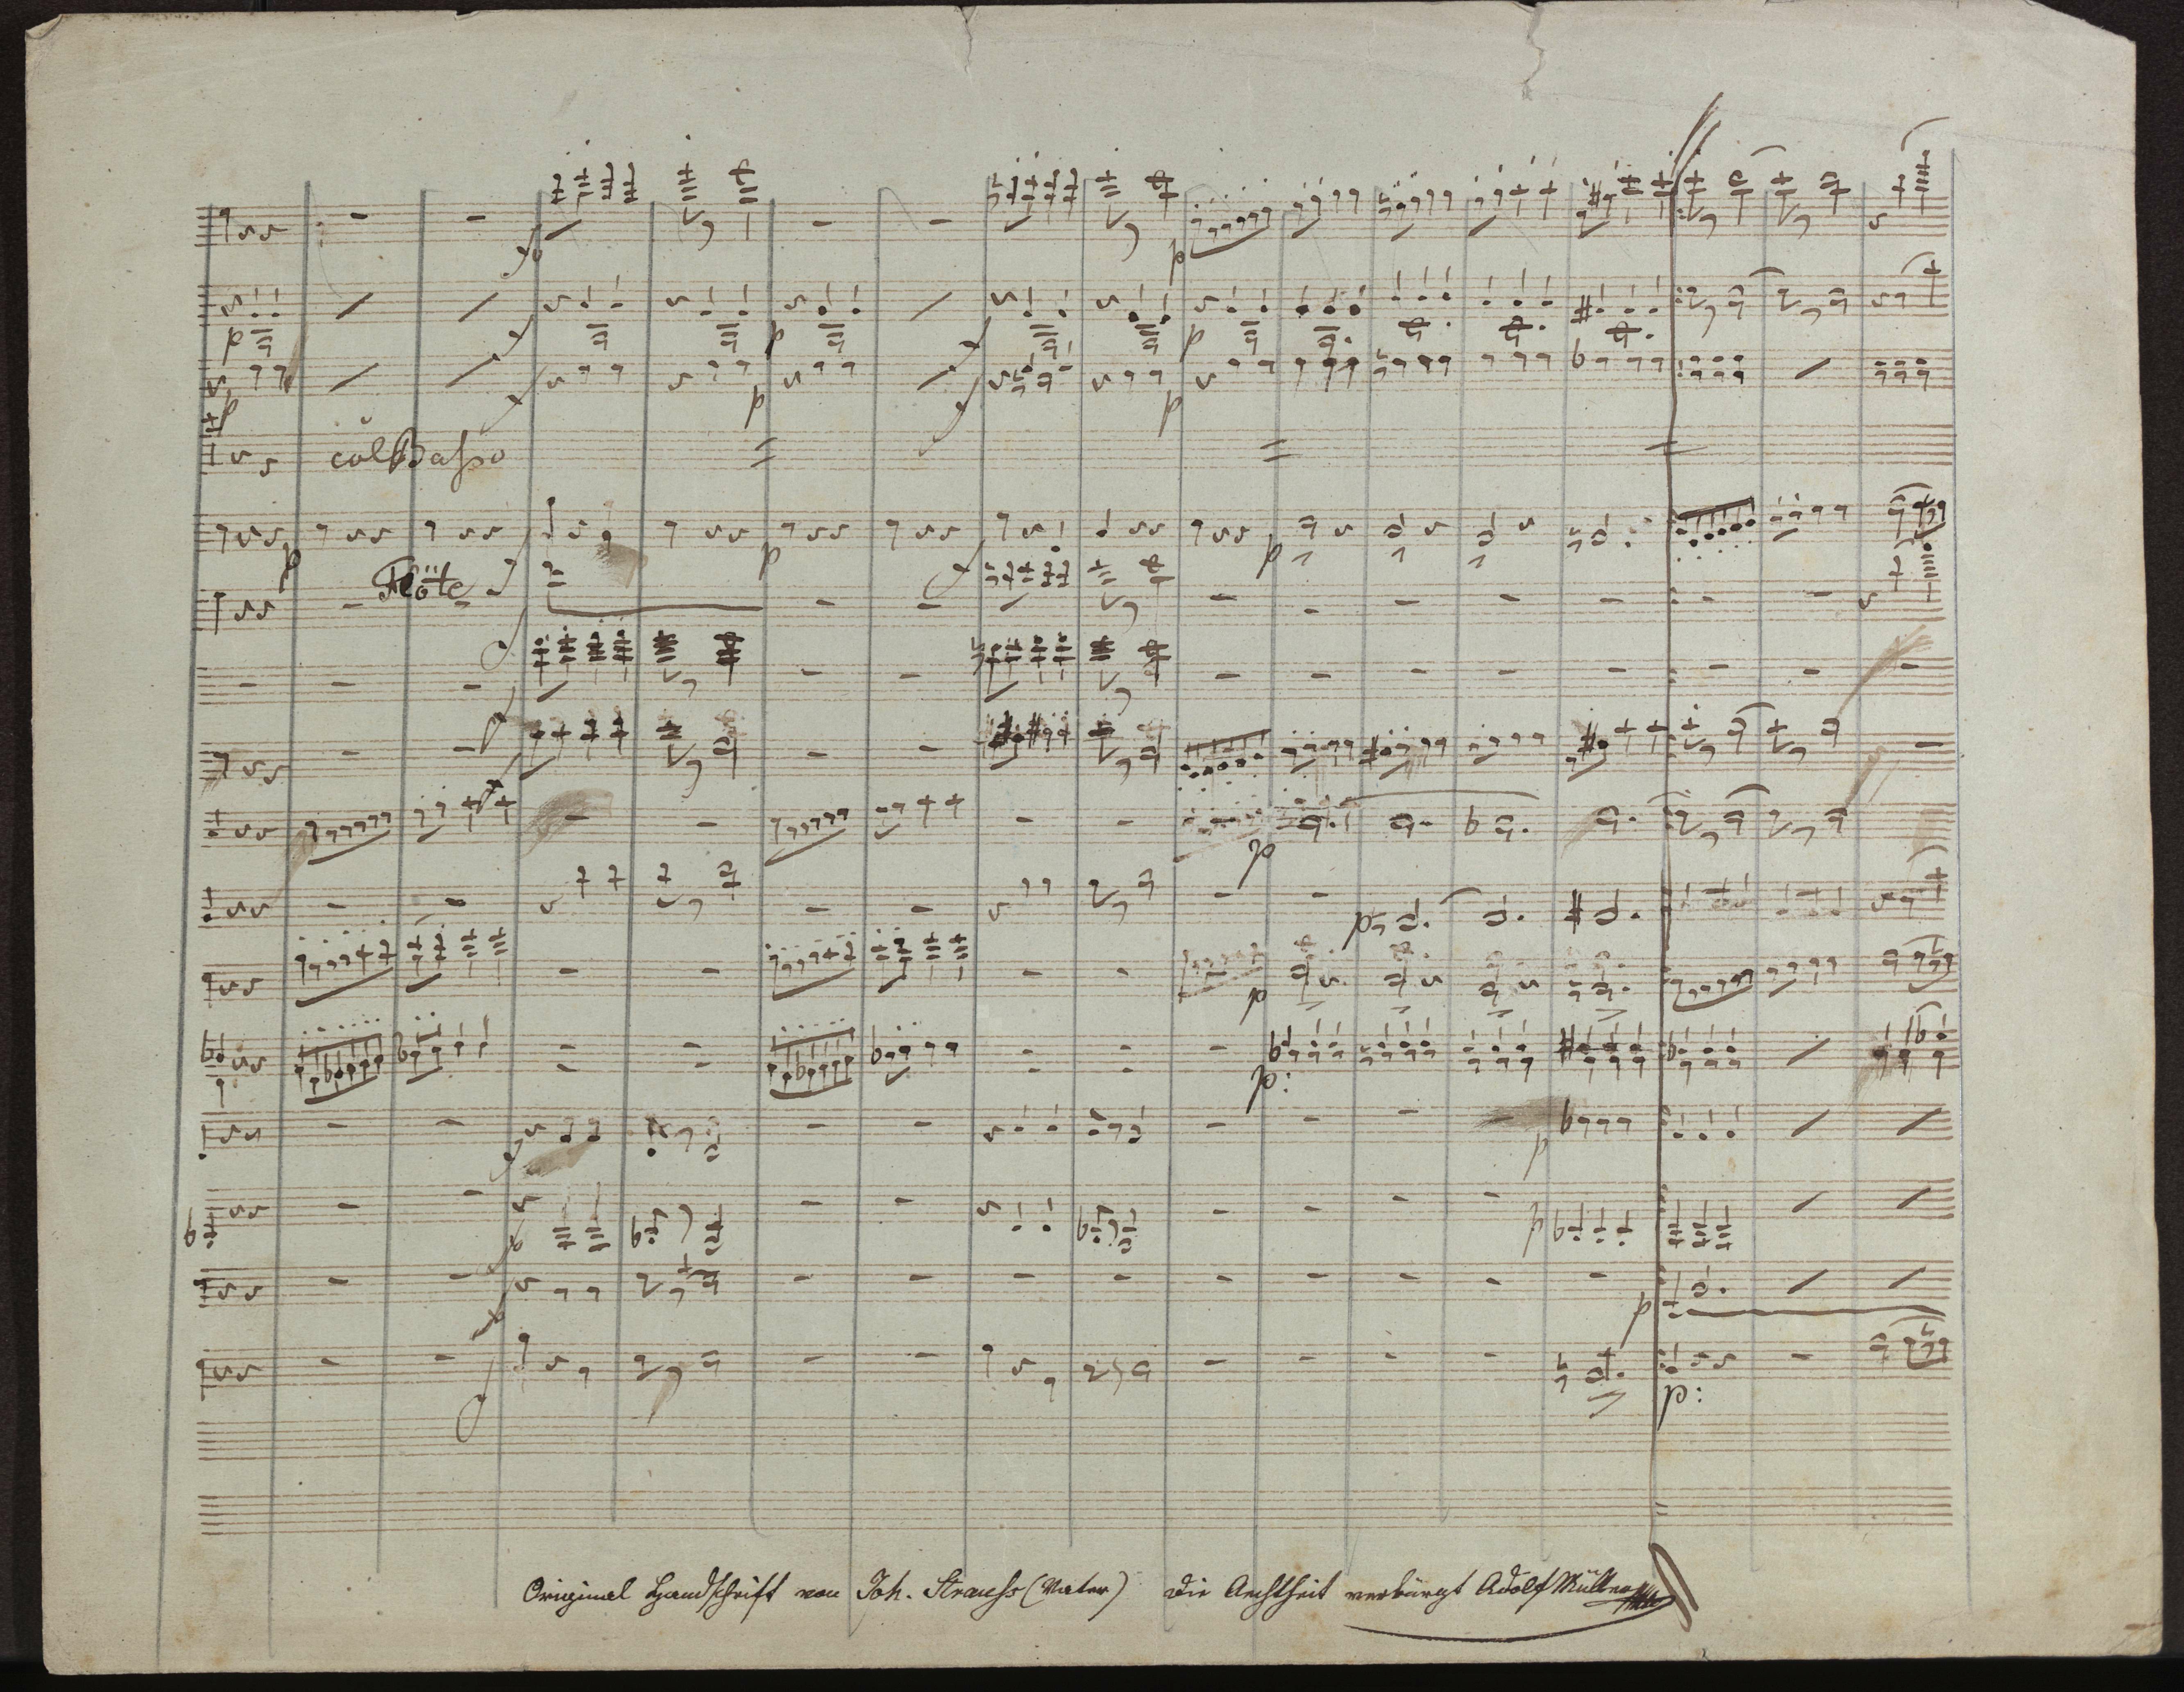 col Basso
Flöte
Original Handschrift von Joh. Strauss (Vater) Die Aechtheit verbürgt Adolf Müller